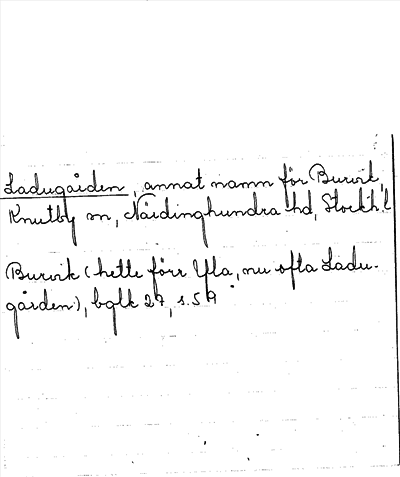 Ladugården, annat namn för Burvik,
Knutby sn, Närdinghundra hd, Stockh. l
Burvik (hette förr Ylla, nu ofta Ladu-
gården), bglk 27, s. 59